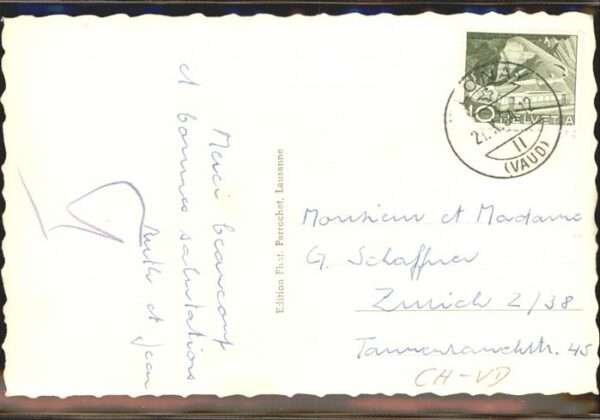 Merci beaucoup
et bonnes salutations
Ruth et Jean
Edition Phot. Perrochet, Lausanne
10 HELVETIA
II
(VAUD)
Monsieur et Madame
G. Schaffner
Zürich 2/38
45
CH-VD